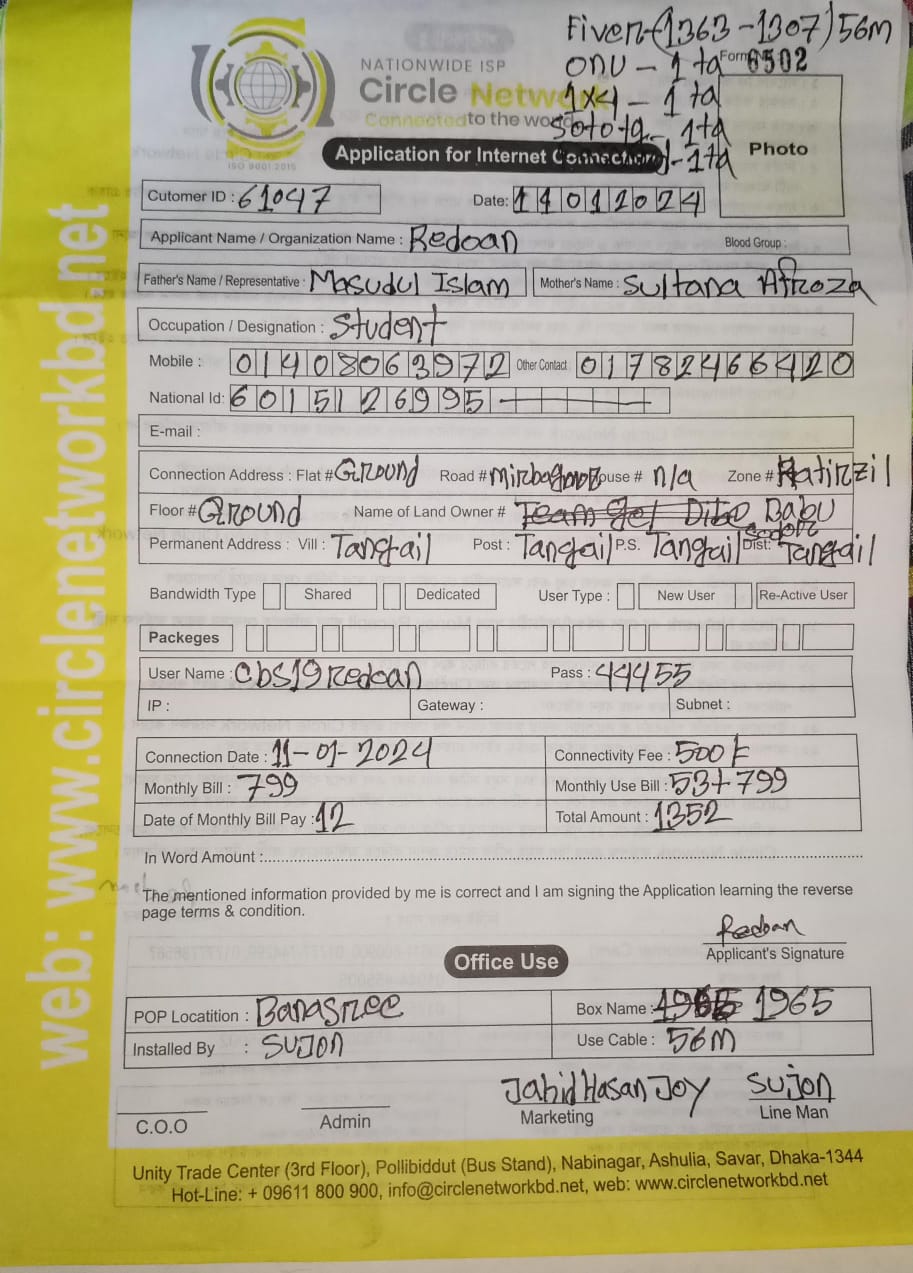 Fiver-(1363-1307)56m
NATIONWIDE ISP
ONU - 1 ta Form 6502
Circle Network
1x4 - 1 ta
Connected to the world
Sototo - 1ta
Application for Internet Connection -1ta
Photo
ISO 9001:2015
Cutomer ID : 61047 Date: 11012024
Applicant Name / Organization Name : Redoan Blood Group :
Father's Name / Representative : Masudul Islam Mother's Name : Sultana Afroza
Occupation / Designation : Student
Mobile : 01408063972 Other Contact 01782466420
National Id: 6015126995
E-mail :
Connection Address : Flat # Ground Road # House # n/a Zone # Hatirzil
Floor # Ground Name of Land Owner # Babu
Permanent Address : Vill : Tangail Post : Tangail P.S. Tangail Sodor Dist: Tangail
Bandwidth Type Shared Dedicated User Type : New User Re-Active User
Packeges
User Name : cbs19redoan Pass : 44455
IP : Gateway : Subnet :
Connection Date : 11-01-2024 Connectivity Fee : 500
Monthly Bill : 799 Monthly Use Bill : 53+799
Date of Monthly Bill Pay : 12 Total Amount : 1352
In Word Amount :
The mentioned information provided by me is correct and I am signing the Application learning the reverse
page terms & condition.
Redoan
Applicant's Signature
Office Use
POP Locatition : Banasree Box Name : 1965
Installed By : Sujon Use Cable : 56m
Jahid Hasan Joy Sujon
C.O.O Admin Marketing Line Man
Unity Trade Center (3rd Floor), Pollibiddut (Bus Stand), Nabinagar, Ashulia, Savar, Dhaka-1344
Hot-Line: + 09611 800 900, info@circlenetworkbd.net, web: www.circlenetworkbd.net
web: www.circlenetworkbd.net